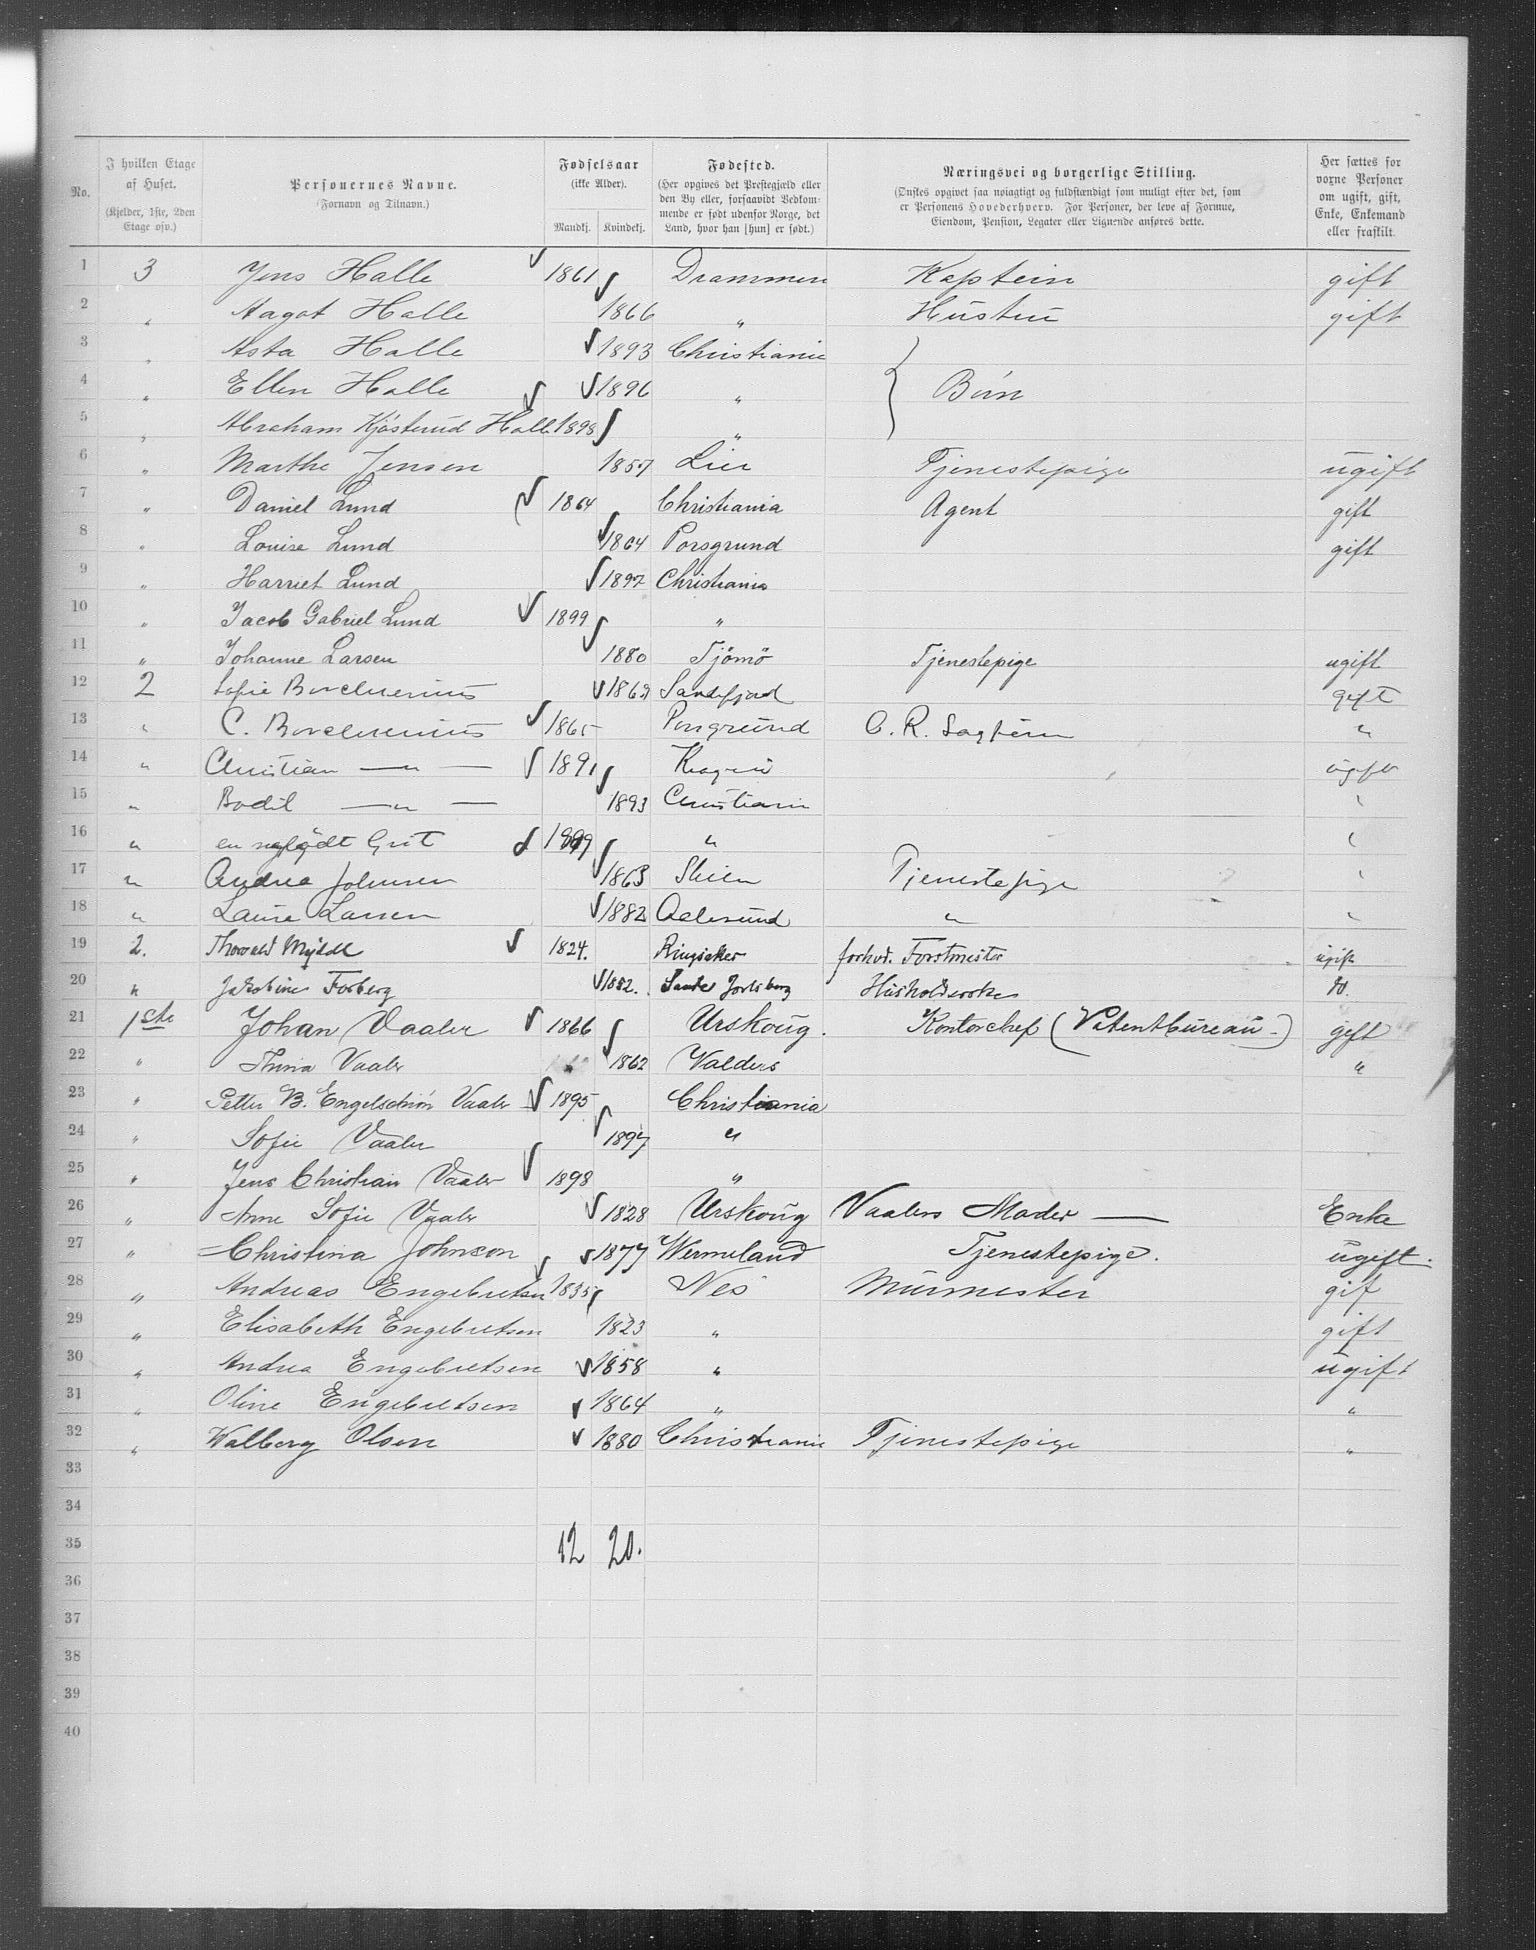 No.
I hvilken Etage af Huset.
(Kjelder, 1ste, 2den Etage osv.)
Personernes Navne.
(Fornavn og Tilnavn.)
Fødselsaar
(ikke Alder).
Mandkj. Kvindekj.
Fødested.
(Her opgives det Prestegjæld eller den By eller, forsaavidt Vedkommende er født udenfor Norge, det Land, hvor han [hun] er født.)
Næringsvei og borgerlige Stilling.
(Ønskes opgivet saa nøiagtigt og fuldstændigt som muligt efter det, som er Personens Hovederhverv. For Personer, der leve af Formue, Eiendom, Pension, Legater eller Lignende anføres dette.
Her sættes for vorne Personer om ugift, gift, Enke, Enkemand eller fraskilt.
1 3 Jens Halle 1861 Drammen Kaptein gift
2 " Aagot Halle 1866 " Hustru gift
3 " Asta Halle 1893 Christiania
4 " Ellen Halle 1896 " Børn
5 " Abraham Kjøsterud Halle 1898 "
6 " Marthe Jensen 1857 Lier Tjenestepige ugift
7 " Daniel Lund 1864 Christiania Agent gift
8 " Louise Lund 1864 Porsgrund gift
9 " Harriet Lund 1897 Christiania
10 " Jacob Gabriel Lund 1899 "
11 " Johanne Larsen 1880 Tjømø Tjenestepige ugift
12 2 Sofie Borchrevius 1869 Sandefjord gift
13 " C. Borchrevius 1865 Porsgrund O. R. Sagfører "
14 " Christian —"— 1891 Kragerø ugift
15 " Bodil —"— 1893 Christiania "
16 " en nyfødt Gut 1899 " "
17 " Andrea Johnsen 1863 Skien Tjenestepige "
18 " Laura Larsen 1882 Aalesund " "
19 2. Thorvald Mejdell 1824. Ringsaker forhv. Forstmester ugift
20 " Jakobine Forberg 1882. Sande Jarlsberg Husholderske do.
21 1ste Johan Vaaler 1866 Urskoug. Kontorchef (Patentbureau) gift
22 " Thina Vaaler 1862 Valders "
23 " Petter B. Engelschiøn Vaaler 1895 Christiania
24 " Sofie Vaaler 1897 "
25 " Jens Christian Vaaler 1898 "
26 " Anne Sofie Vaaler 1828 Urskoug Vaalers Moder — Enke
27 " Christina Johnson 1877 Wermeland Tjenestepige. ugift.
28 " Andreas Engebretsen 1835 Nes Murmester gif
29 " Elisabeth Engebretsen 1823 " gift
30 " Andrea Engebretsen 1858 " ugift
31 " Oline Engebretsen 1864 " "
32 " Walborg Olsen 1880 Christiania Tjenestepige "
33
34
35 12 20.
36
37
38
39
40